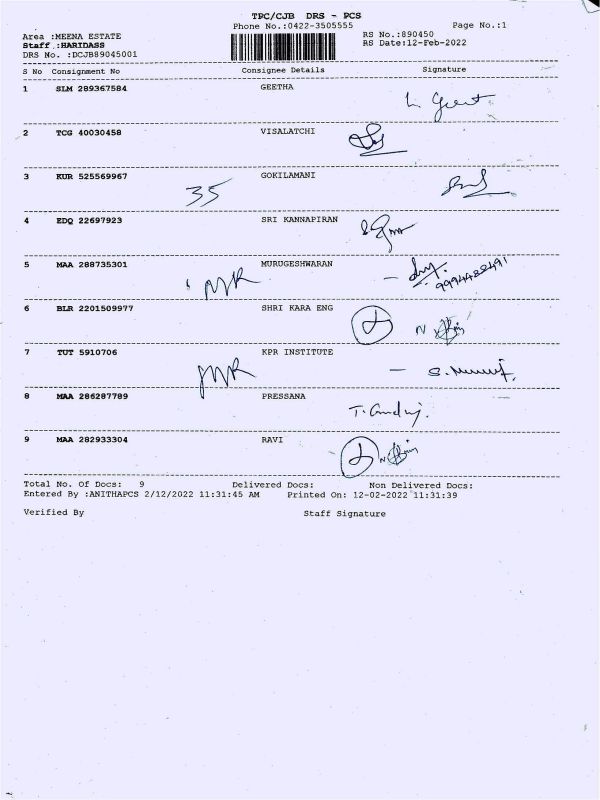 TPC/CJB DRS - PCS
Phone No.:0422-3505555 Page No.:1
Area :MEENA ESTATE RS No.:890450
Staff :HARIDASS RS Date:12-Feb-2022
DRS No. :DCJB89045001
S No Consignment No Consignee Details Signature
1 SLM 289367584 GEETHA
2 TCG 40030458 VISALATCHI
3 KUR 525569967 GOKILAMANI
35
4 EDQ 22697923 SRI KANNAPIRAN
5 MAA 288735301 MURUGESHWARAN
6 BLR 2201509977 SHRI KARA ENG
7 TUT 5910706 KPR INSTITUTE
8 MAA 286287789 PRESSANA
9 MAA 282933304 RAVI
Total No. Of Docs: 9 Delivered Docs: Non Delivered Docs:
Entered By :ANITHAPCS 2/12/2022 11:31:45 AM Printed On: 12-02-2022 11:31:39
Verified By Staff Signature